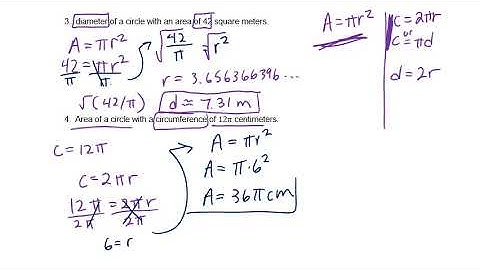 3. diameter of a circle with an area of 42 square meters.
A = πr²
42/π = πr²/π
√(42/π) = √r²
r = 3.656366396...
√(42/π)
d ≈ 7.31 m
4. Area of a circle with a circumference of 12π centimeters.
C = 12π
C = 2πr
12π/2π = 2πr/2π
6 = r
A = πr²
A = π·6²
A = 36π cm
A = πr²
C = 2πr
or
C = πd
d = 2r